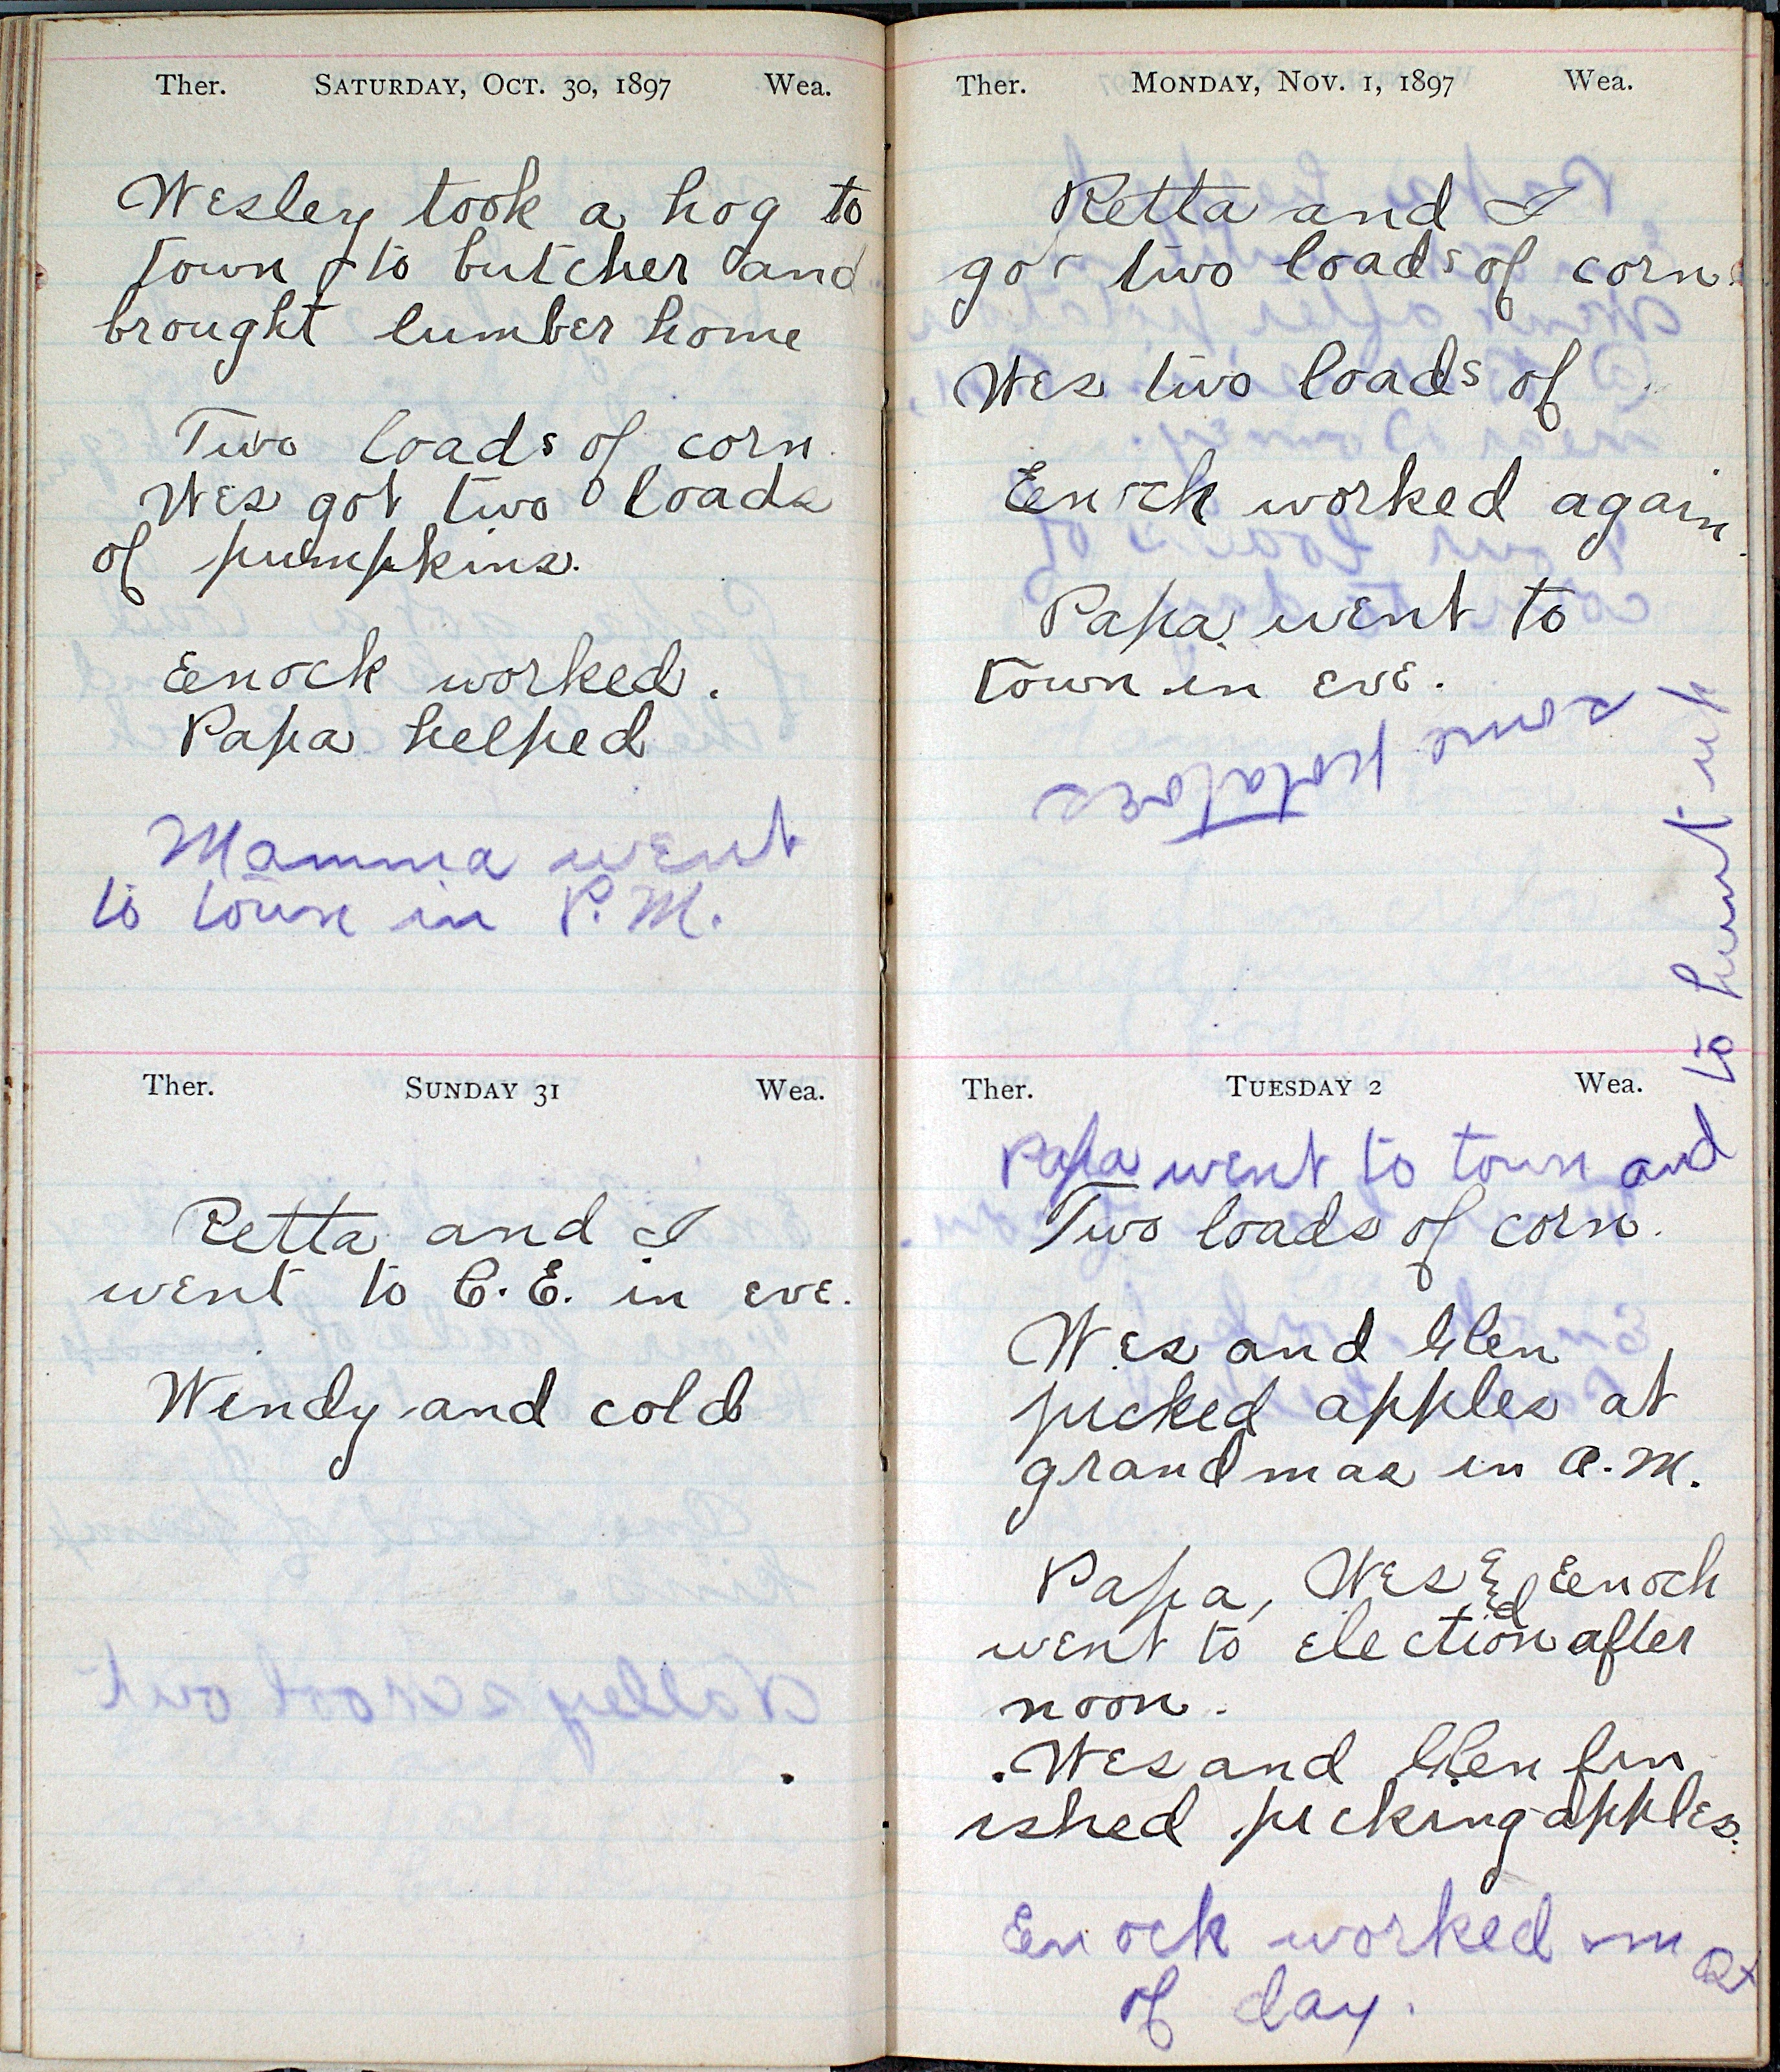 Ther. SATURDAY, OCT. 30, 1897 Wea.
Wesley took a hog to
town to butcher and
brought lumber home
Two loads of corn.
Wes got two loads
of pumpkins.
Enock worked.
Papa helped
Mamma went
to town in P.M.
Ther. SUNDAY 31 Wea.
Retta and I
went to C.E. in eve.
Windy and cold
Ther. MONDAY, NOV. 1, 1897 Wea.
Retta and I
got two loads of corn.
Wes two loads of
Enock worked again.
Papa went to
town in eve.
Ther. TUESDAY 2 Wea.
Papa went to town and
to hunt up
some potatoes
Two loads of corn.
Wes and Glen
picked apples at
grandmas in A.M.
Papa, Wes & Enoch
went to election after
noon.
Wes and Glen fin
ished picking apples.
Enock worked most
of day.